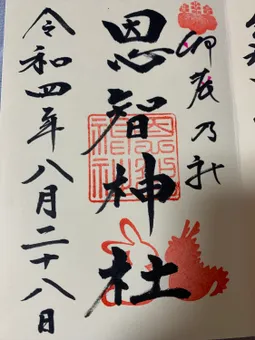 卯辰乃社
恩智神社
令和四年八月二十八日